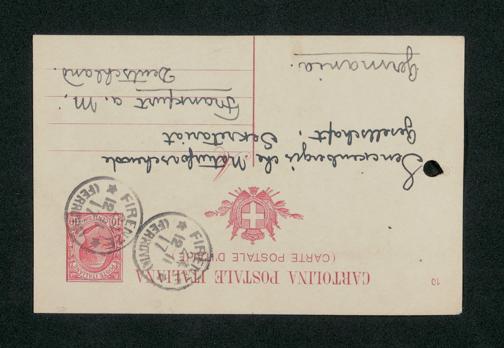 10
CARTOLINA POSTALE ITALIANA
(CARTE POSTALE D'ITALIE)
FIRENZE
(FERROVIA)
FIRENZE
(FERROVIA)
Senckenbergische Naturforschende
Gesellschaft. Sekretariat
Frankfurt a. M.
Deutschland.
Germania.